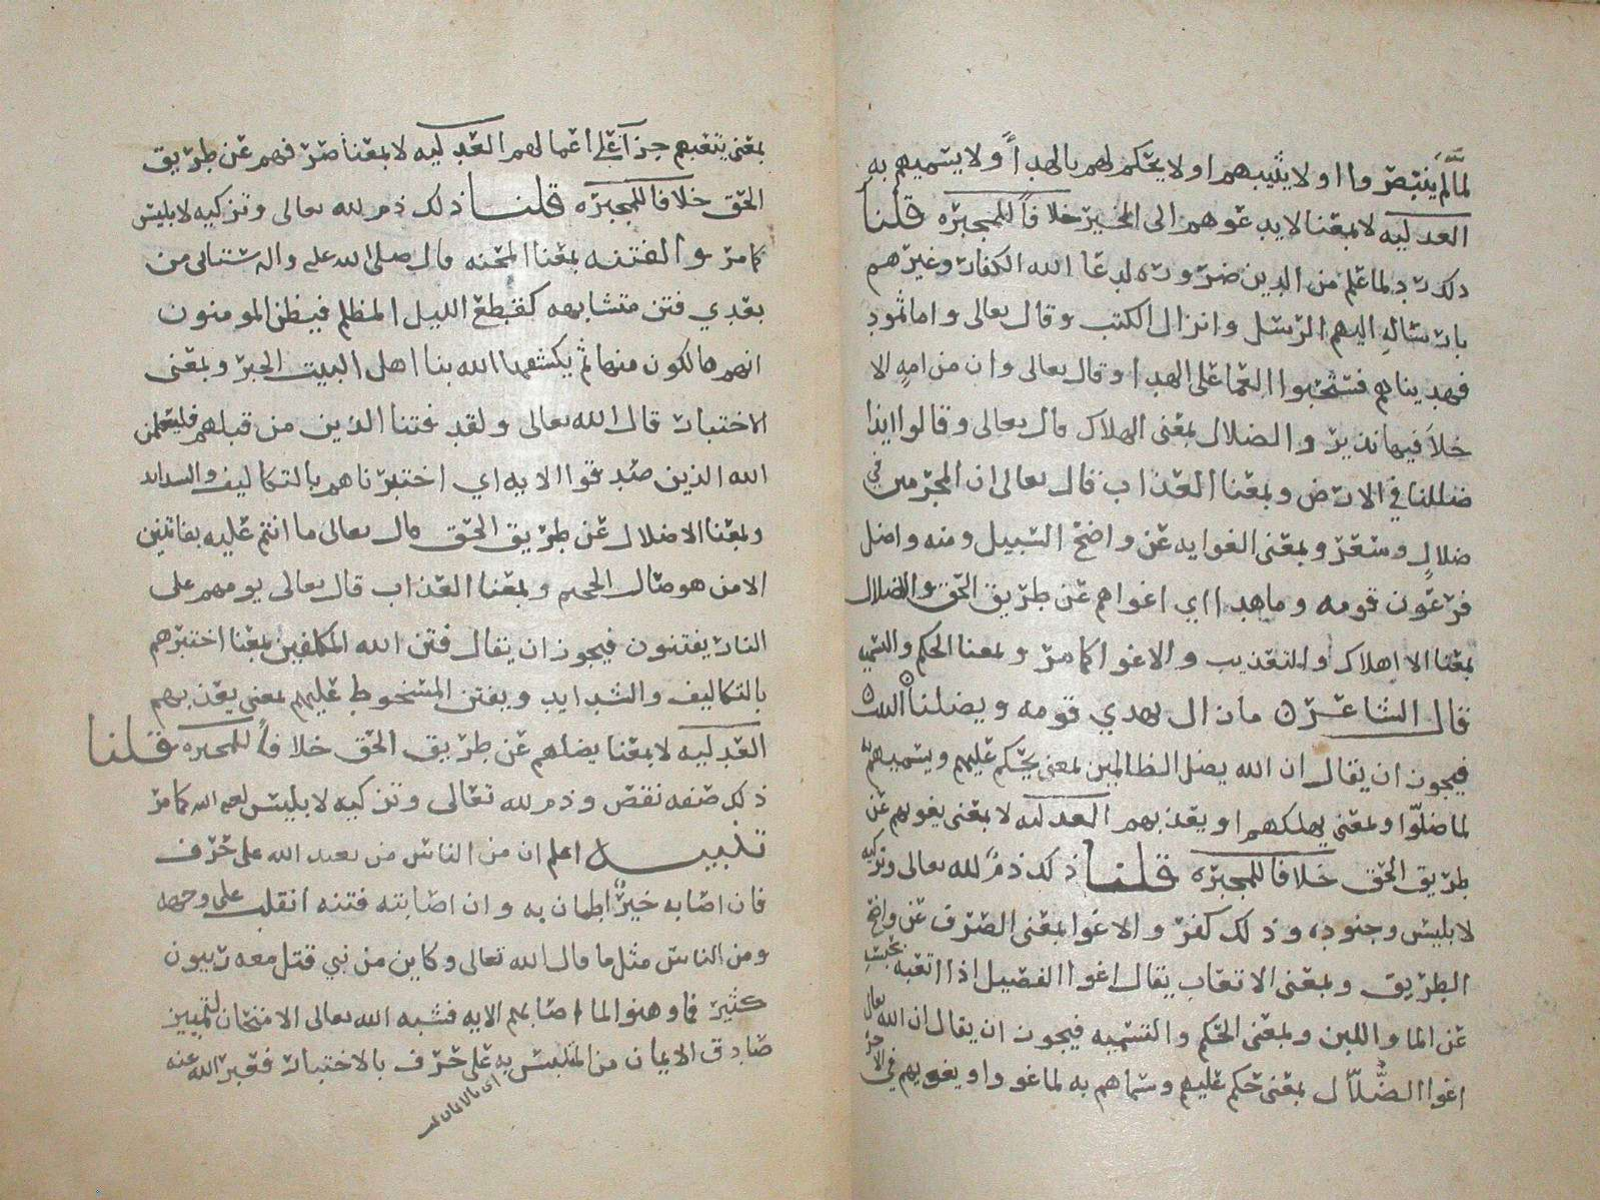 لما لم يتبصروا او لا يثيبهم او لا يحكم لهم بالهدا او لا يسميهم به
العدليه لا بمعنا لا يدعوهم الى الخير خلافاً للمجبره قلنا
ذلك رد لما علم من الدين ضروره لدعا الله الكفار وغيرهم
بارساله اليهم الرسل وانزال الكتب وقال تعالى واما ثمود
فهديناهم فستحبوا العما على الهدا وقال تعالى وان من امه الا
خلا فيها نذير والضلال بمعنى الهلاك قال تعالى وقالوا ايذا
ضللنا في الارض وبمعنا العذاب قال تعالى ان المجرمين في
ضلال وسعر وبمعنى الغوايه عن واضح السبيل ومنه واضل
فرعون قومه وما هدا اي اغواهم عن طريق الحق والاضلال
بمعنا الاهلاك والتعذيب والاغوا كما مر وبمعنا الحكم والتسميه
قال الشاعر ما زال يهدي قومه ويضلنا البيت
فيجوز ان يقال ان الله يضل الظالمين بمعنى يحكم عليهم ويسميهم به
لما ضلّوا وبمعنى يهلكهم او يعذبهم العدليه لا بمعنى يغويهم عن
طريق الحق خلافا للمجبره قلنا ذلك ذم لله تعالى وتزكيه
لابليس وجنوده وذلك كفر والاغوا بمعنى الصرف عن واضح
الطريق وبمعنى الاتعاب يقال اغوا الفصيل اذا اتعبه بحبسه
عن الما واللبن وبمعنى الحكم والتسميه فيجوز ان يقال ان الله تعالى
اغوا الضُّلّال بمعنى حكم عليهم وسماهم به لما غووا ويغويهم في الاخره
بمعنى يتعبهم جزآ على اعمالهم العدليه لا بمعنا صرفهم عن طريق
الحق خلافا للمجبره قلنا ذلك ذم لله تعالى وتزكيه لابليس
كما مر والفتنه بمعنا المحنه قال صلى الله عليه واله ستاتى من
بعدي فتن متشابهه كقطع الليل المظلم فيظن المومنون
انهم هالكون منها ثم يكشفها الله بنا اهل البيت الخبر وبمعنى
الاختبار قال الله تعالى ولقد فتنا الذين من قبلهم فليعلمن
الله الذين صدقوا الايه اي اختبرناهم بالتكاليف والشدايد
وبمعنا الاضلال عن طريق الحق قال تعالى ما انتم عليه بفاتنين
الا من هو صال الجحيم وبمعنا العذاب قال تعالى يوم هم على
النار يفتنون فيجوز ان يقال فتن الله المكلفين بمعنا اختبرهم
بالتكاليف والشدايد ويفتن المسخوط عليهم بمعنى يعذبهم
العدليه لا بمعنا يضلهم عن طريق الحق خلافاً للمجبره قلنا
ذلك صفه نقص وذم لله تعالى وتزكيه لابليس لعنه الله كما مر
تنبيه اعلم ان من الناس من يعبد الله على حرف
فان اصابه خيرٌ اطمان به وان اصابته فتنه انقلب على وجهه
ومن الناس مثل ما قال الله تعالى وكاين من نبي قتل معه ربيون
كثير فما وهنوا لما اصابهم الايه فشبه الله تعالى الامتحان لتمييز
صادق الايمان من المتلبس به على حرف بالاختبار فعبر الله عنه